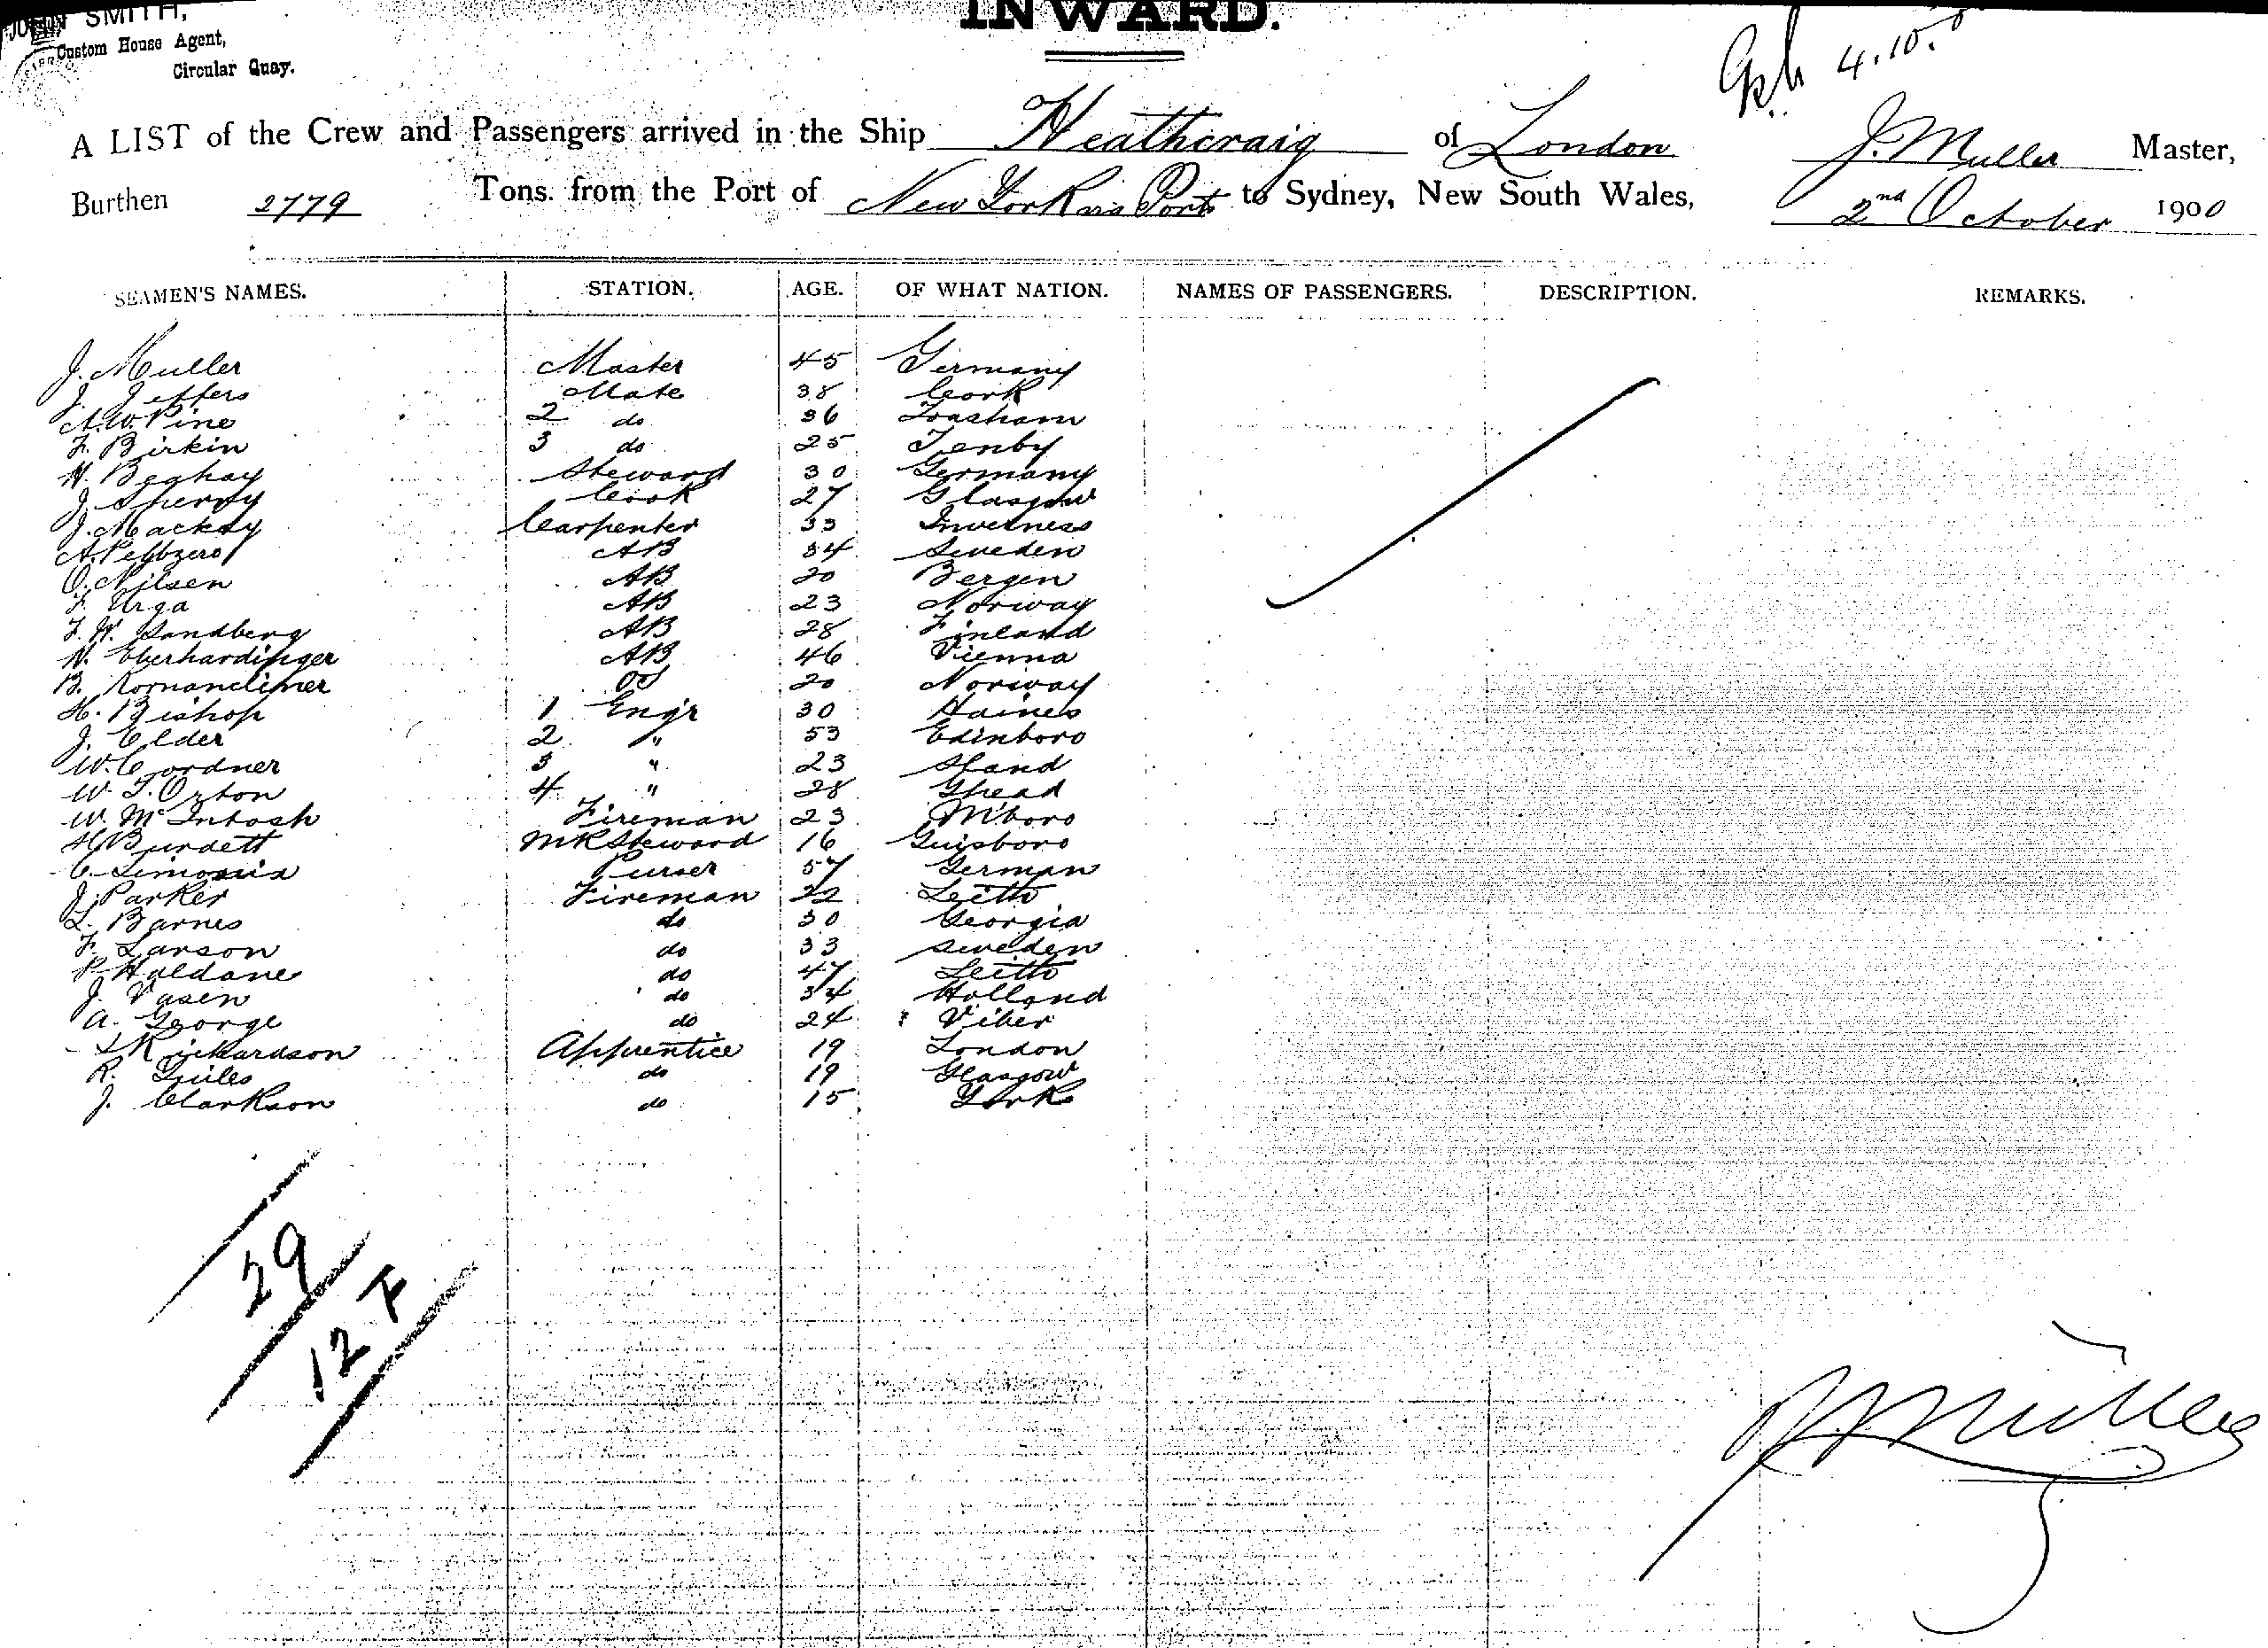 JOHN SMITH,
Custom House Agent,
Circular Quay.
INWARD.
4.10.
A LIST of the Crew and Passengers arrived in the Ship Heathcraig of London J. Muller Master,
Burthen 2779 Tons from the Port of New York via Ports to Sydney, New South Wales, 2nd October 1900
SEAMEN'S NAMES. STATION. AGE. OF WHAT NATION. NAMES OF PASSENGERS. DESCRIPTION. REMARKS.
J. Muller Master 45 Germany
J. Jeffers Mate 38 Cork
A. W. Pine 2 do 36
F. Birkin 3 do 25 Tenby
H. Beghay Steward 30 Germany
J. Sherry Cook 27 Glasgow
J. Mackay Carpenter 33 Inverness
A. AB 34 Sweden
O. Nilsen AB 20 Bergen
F. Urga AB 23 Norway
F. W. Sandberg AB 28 Finland
N. Eberhardinger AB 46 Vienna
B. OS 20 Norway
H. Bishop 1 Engr 30 Haines
J. Elder 2 " 53 Edinboro
W. Cordner 3 " 23 Sland
W. T. Orton 4 " 28 Ghead
W. McIntosh Fireman 23 M'boro
H Burdett MR Steward 16 Guisboro
C. Purser 57 German
J. Parker Fireman 22 Leith
L. Barnes do 30 Georgia
F. Larson do 33 Sweden
P. Haldane do 47 Leith
J. Vasen do 34 Holland
A. George do 24 Viber
Richardson Apprentice 19 London
R. Giules do 19 Glasgow
J. Clarkson do 15 York
29
12 F
J. Müller